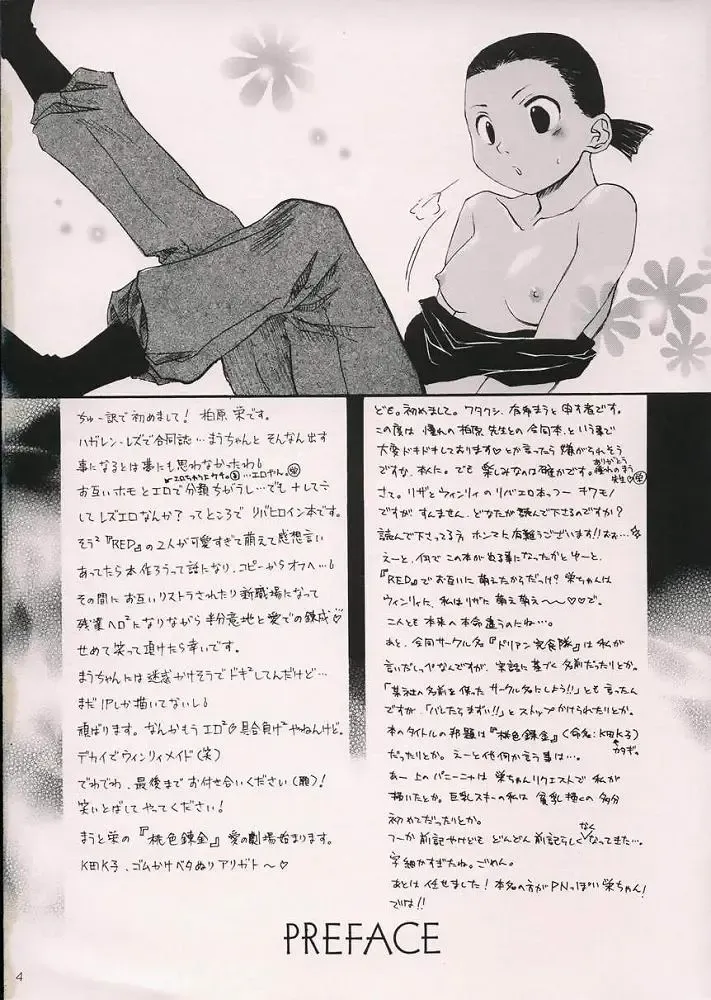 ちゅー訳で初めまして! 柏原 栄です。
ハガレン・レズで合同誌…まうちゃんと そんなん出す
事になるとは夢にも思わなかったわ!
お互いホモとエロで分類ちがうし…でも
レズエロなんか? ってところで リバヒロイン本です。
そう²『RED』の2人が可愛すぎて萌えて感想言い
あってたら本作ろうって話になり、コピーからオフへ…!
その間に お互いリストラされたり新職場になって
残業ヘロ²になりながら 半分意地と愛での錬成♡
せめて笑って頂けたら幸いです。
まうちゃんには迷惑かけそうでドキ²してんだけど…
まだ 1Pしか描いてないし!
頑張ります。なんかもう エロ² 具合負け²やねんけど。
デカイでウィンリィメイド(笑)
でわでわ、最後まで お付き合いください(願)!
笑いとばして やってください!
まうと栄の『桃色錬金』愛の劇場始まります。
K田K子、ゴムかけベタぬり アリガト〜♡
ども。初めまして。ワタクシ、 まうと申す者です。
この度は 憧れの柏原先生との 合同本、という事で
大変ドキドキしております♡とか言ったら 嫌がられそう
ですな、本人に。でも 楽しみなのは確かです。
ありがとう
憧れのまう
先生♡栄
さて。リザとウィンリィのリバエロ本、つー キワモノ
ですが すんません、どなたが読んで下さるのですか?
読んで下さってる方 ホンマに有難うございます!!
えーと、何で この本が出る事になったかとゆーと。
『RED』でお互いに 萌えたからだっけ? 栄ちゃんは
ウィンリィに、私はリザに萌え萌え〜〜♡♡で。
二人とも 本来の 本命違うのにね…。
あと、合同サークル名『ドリアン完食隊』は 私が
言いだしっぺなんですが、実話に基づく 名前だったりとか。
「某社の名前を使った サークル名にしよう!!」とも 言ったん
ですが、「バレたら まずい!!」と ストップ かけられたりとか。
本のタイトルの邦題は『桃色錬金』(命名:K田K子)
カタギ。
だったりとか。えーと 他 何か言う事は…。
あー 上の パニーニャは 栄ちゃんリクエストで 私が
描いたとか。巨乳スキーの私は 貧乳 描くの 多分
初めてだったりとか。
つーか 前記やけども どんどん 前記らしくなくなってきた…。
字細かすぎたね。ごめん。
あとは 任せました! 本名の方がPNっぽい 栄ちゃん!
では!!
PREFACE
4